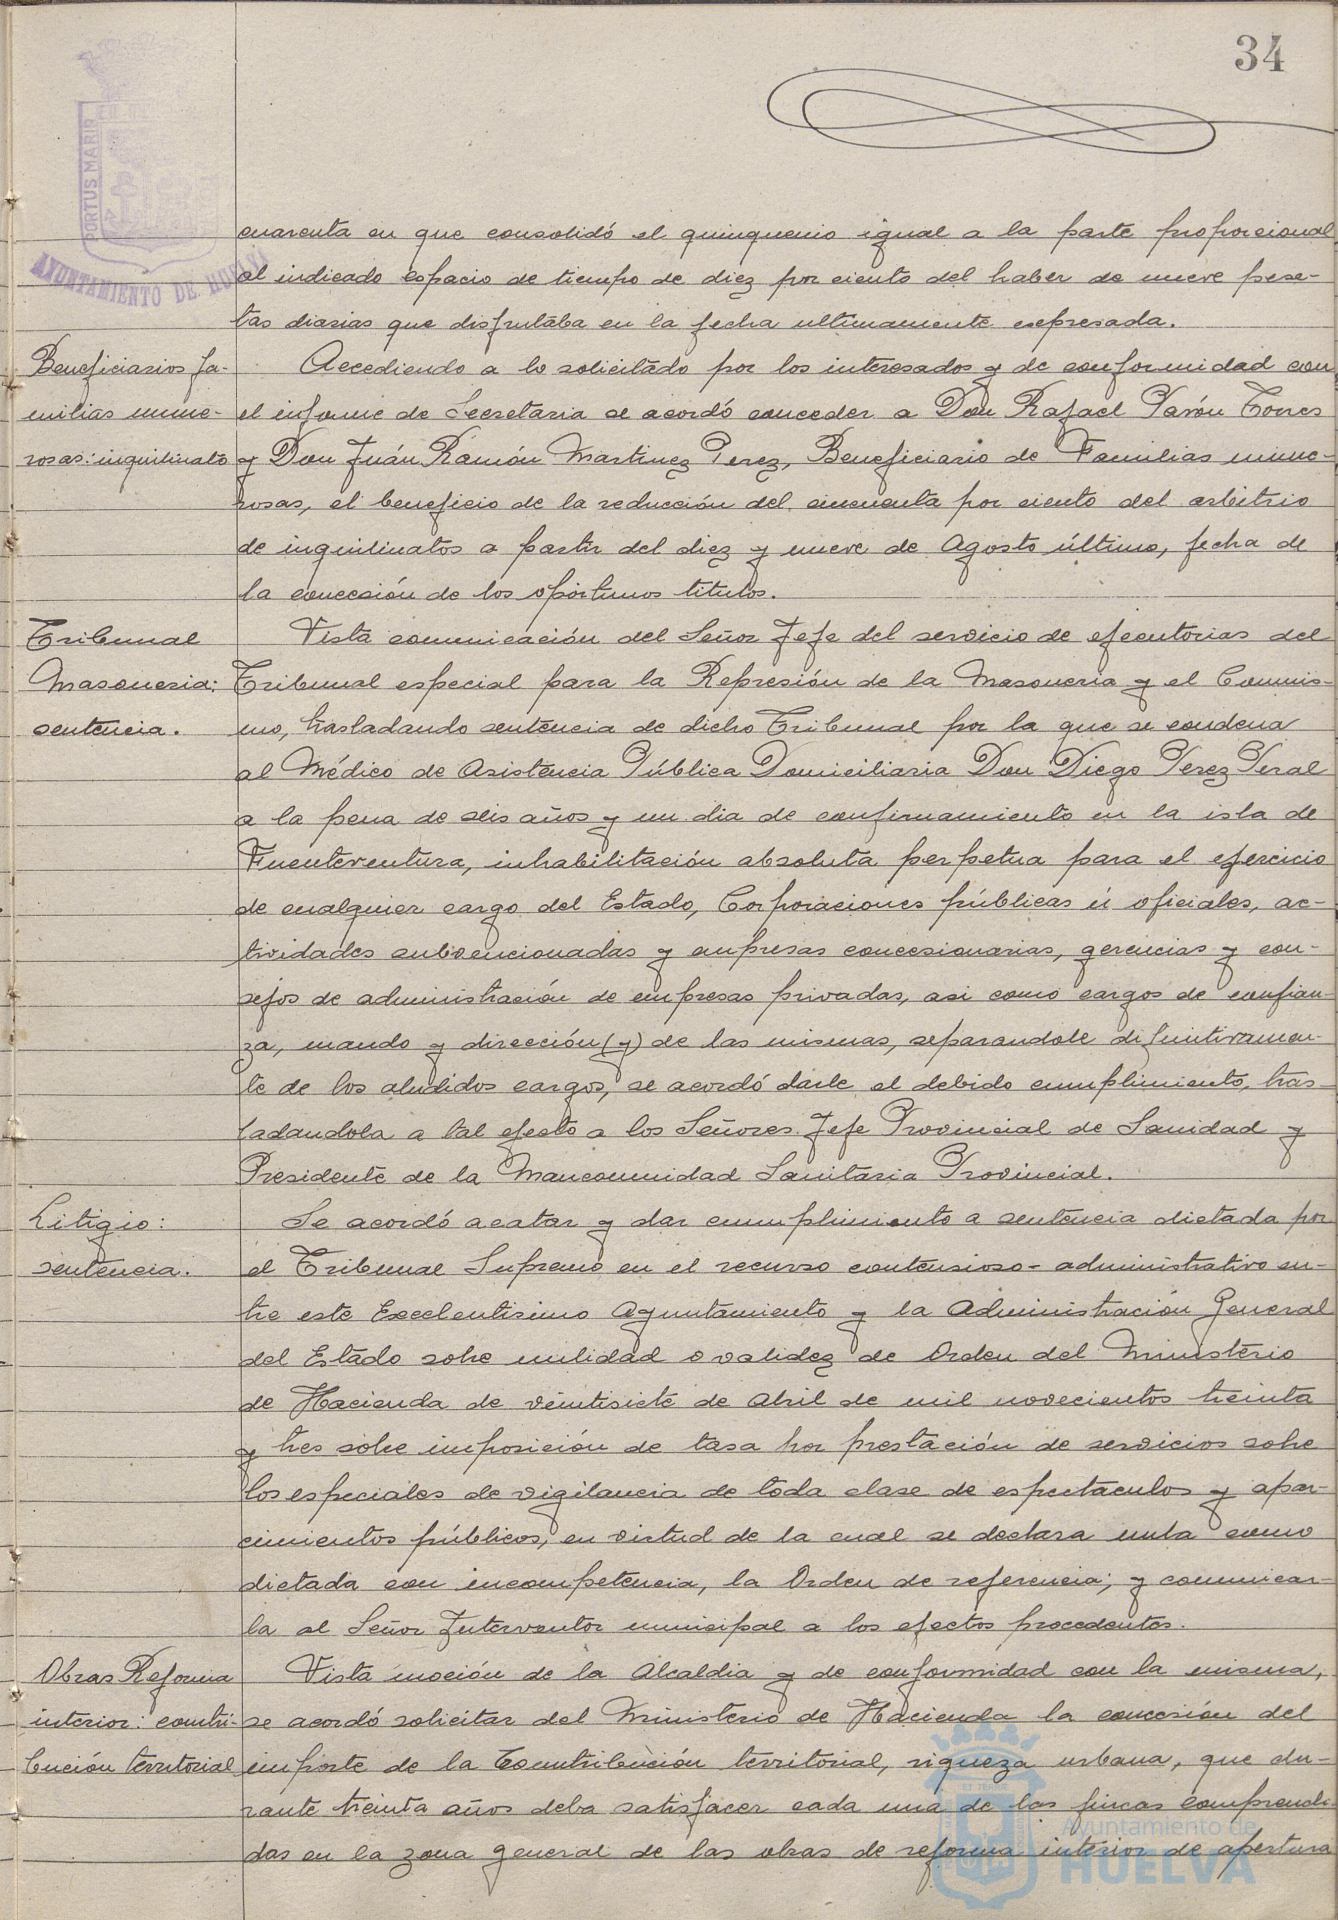 34
PORTUS MARIS
AYUNTAMIENTO DE HUELVA
cuarenta en que consolidó el quinquenio igual a la parte proporcional
al indicado espacio de tiempo de diez por ciento del haber de nueve pese-
tas diarias que disfrutaba en la fecha ultimamente expresada.
Beneficiarios fa-
milias nume-
rosas: inquilinato
Accediendo a lo solicitado por los interesados y de conformidad con
el informe de Secretaria se acordó conceder a Don Rafael Pavón Torres
y Don Juán Ramón Martinez Perez, Beneficiario de Familias nume-
rosas, el beneficio de la reducción del cincuenta por ciento del arbitrio
de inquilinatos a partir del diez y nueve de Agosto último, fecha de
la concesión de los oportunos titulos.
Tribunal
Masoneria:
sentencia.
Vista comunicación del Señor Jefe del servicio de ejecutorias del
Tribunal especial para la Represión de la Masoneria y el Comunis-
mo, trasladando sentencia de dicho Tribunal por la que se condena
al Médico de Asistencia Pública Domiciliaria Don Diego Perez Peral
a la pena de seis años y un dia de confinamiento en la isla de
Fuenteventura, inhabilitación absoluta perpetua para el ejercicio
de cualquier cargo del Estado, Corporaciones públicas ú oficiales, ac-
tividades subvencionadas y empresas concesionarias, gerencias y con-
sejos de administración de empresas privadas, asi como cargos de confian-
za, mando y dirección (y) de las mismas, separandole difinitivamen-
te de los aludidos cargos, se acordó darle el debido cumplimiento, tras-
ladandola a tal efecto a los Señores Jefe Provincial de Sanidad y
Presidente de la Mancomunidad Sanitaria Provincial.
Litigio:
sentencia.
Se acordó acatar y dar cumplimiento a sentencia dictada por
el Tribunal Supremo en el recurso contensioso-administrativo en-
tre este Excelentisimo Ayuntamiento y la Administración General
del Estado sobre nulidad o validez de Orden del Ministerio
de Hacienda de veintisiete de Abril de mil novecientos treinta
y tres sobre imposición de tasa por prestación de servicios sobre
los especiales de vigilancia de toda clase de espectaculos y apar-
cimientos públicos, en virtud de la cual se declara nula como
dictada con incompetencia, la Orden de referencia; y comunicar-
la al Señor Interventor municipal a los efectos procedentes.
Obras Reforma
interior: contri-
bución territorial
Vista moción de la Alcaldia y de conformidad con la misma,
se acordó solicitar del Ministerio de Hacienda la concesión del
importe de la Contribución territorial, riqueza urbana, que du-
rante treinta años deba satisfacer cada una de las fincas comprendi-
das en la zona general de las obras de reforma interior de apertura
Ayuntamiento de
HUELVA